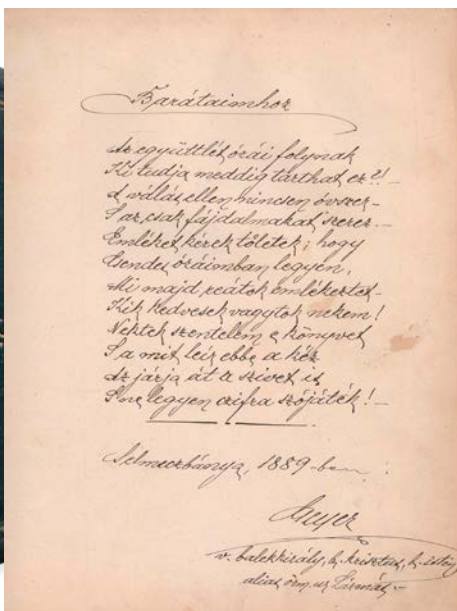 Barátaimhoz
Az együttlét órái folynak
Ki tudja meddig tarthat ez?! –
A válás ellen nincsen óvszer –
S az csak fájdalmakat szerez. –
Emléket kérek tőletek; hogy
Csendes óráimban legyen,
Mi majd reátok emlékeztet –
Kik kedvesek vagytok nekem!
Néktek szentelem e könyvet
S a mit leir ebbe a kéz
Az járja át a szivet is
S ne legyen czifra szójáték! –
Selmeczbánya, 1889-ben
v. balekkirály, h. krisztus, h. isten
alias